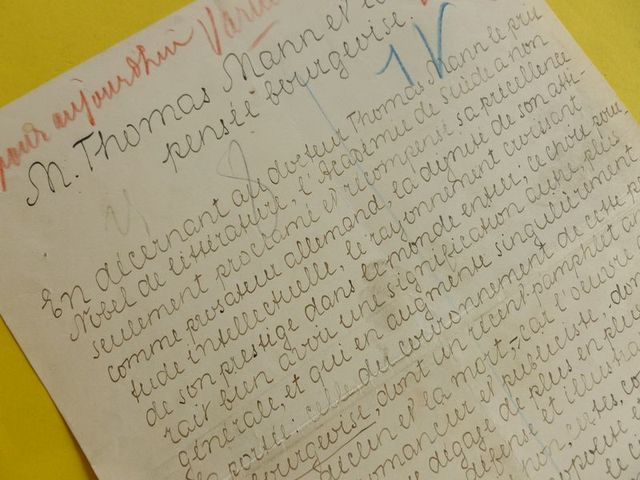 pour aujourdhui Varié
1V
M. Thomas Mann et la
pensée bourgeoise.
En décernant au docteur Thomas Mann le prix
Nobel de littérature, l'Académie de Suède a non
seulement proclamé et récompensé sa précellence
comme prosateur allemand, la dignité de son atti-
tude intellectuelle, le rayonnement croissant
de son prestige dans le monde entier, ce choix pour-
rait bien avoir une signification autre, plus
générale, et qui en augmente singulièrement
la portée: celle du couronnement de cette p
bourgeoise, dont un récent pamphlet a
déclin et la mort,-car l'œuvre
romancier et publiciste, don
dégage de plus en plus
défense et illustra
non, certes, co